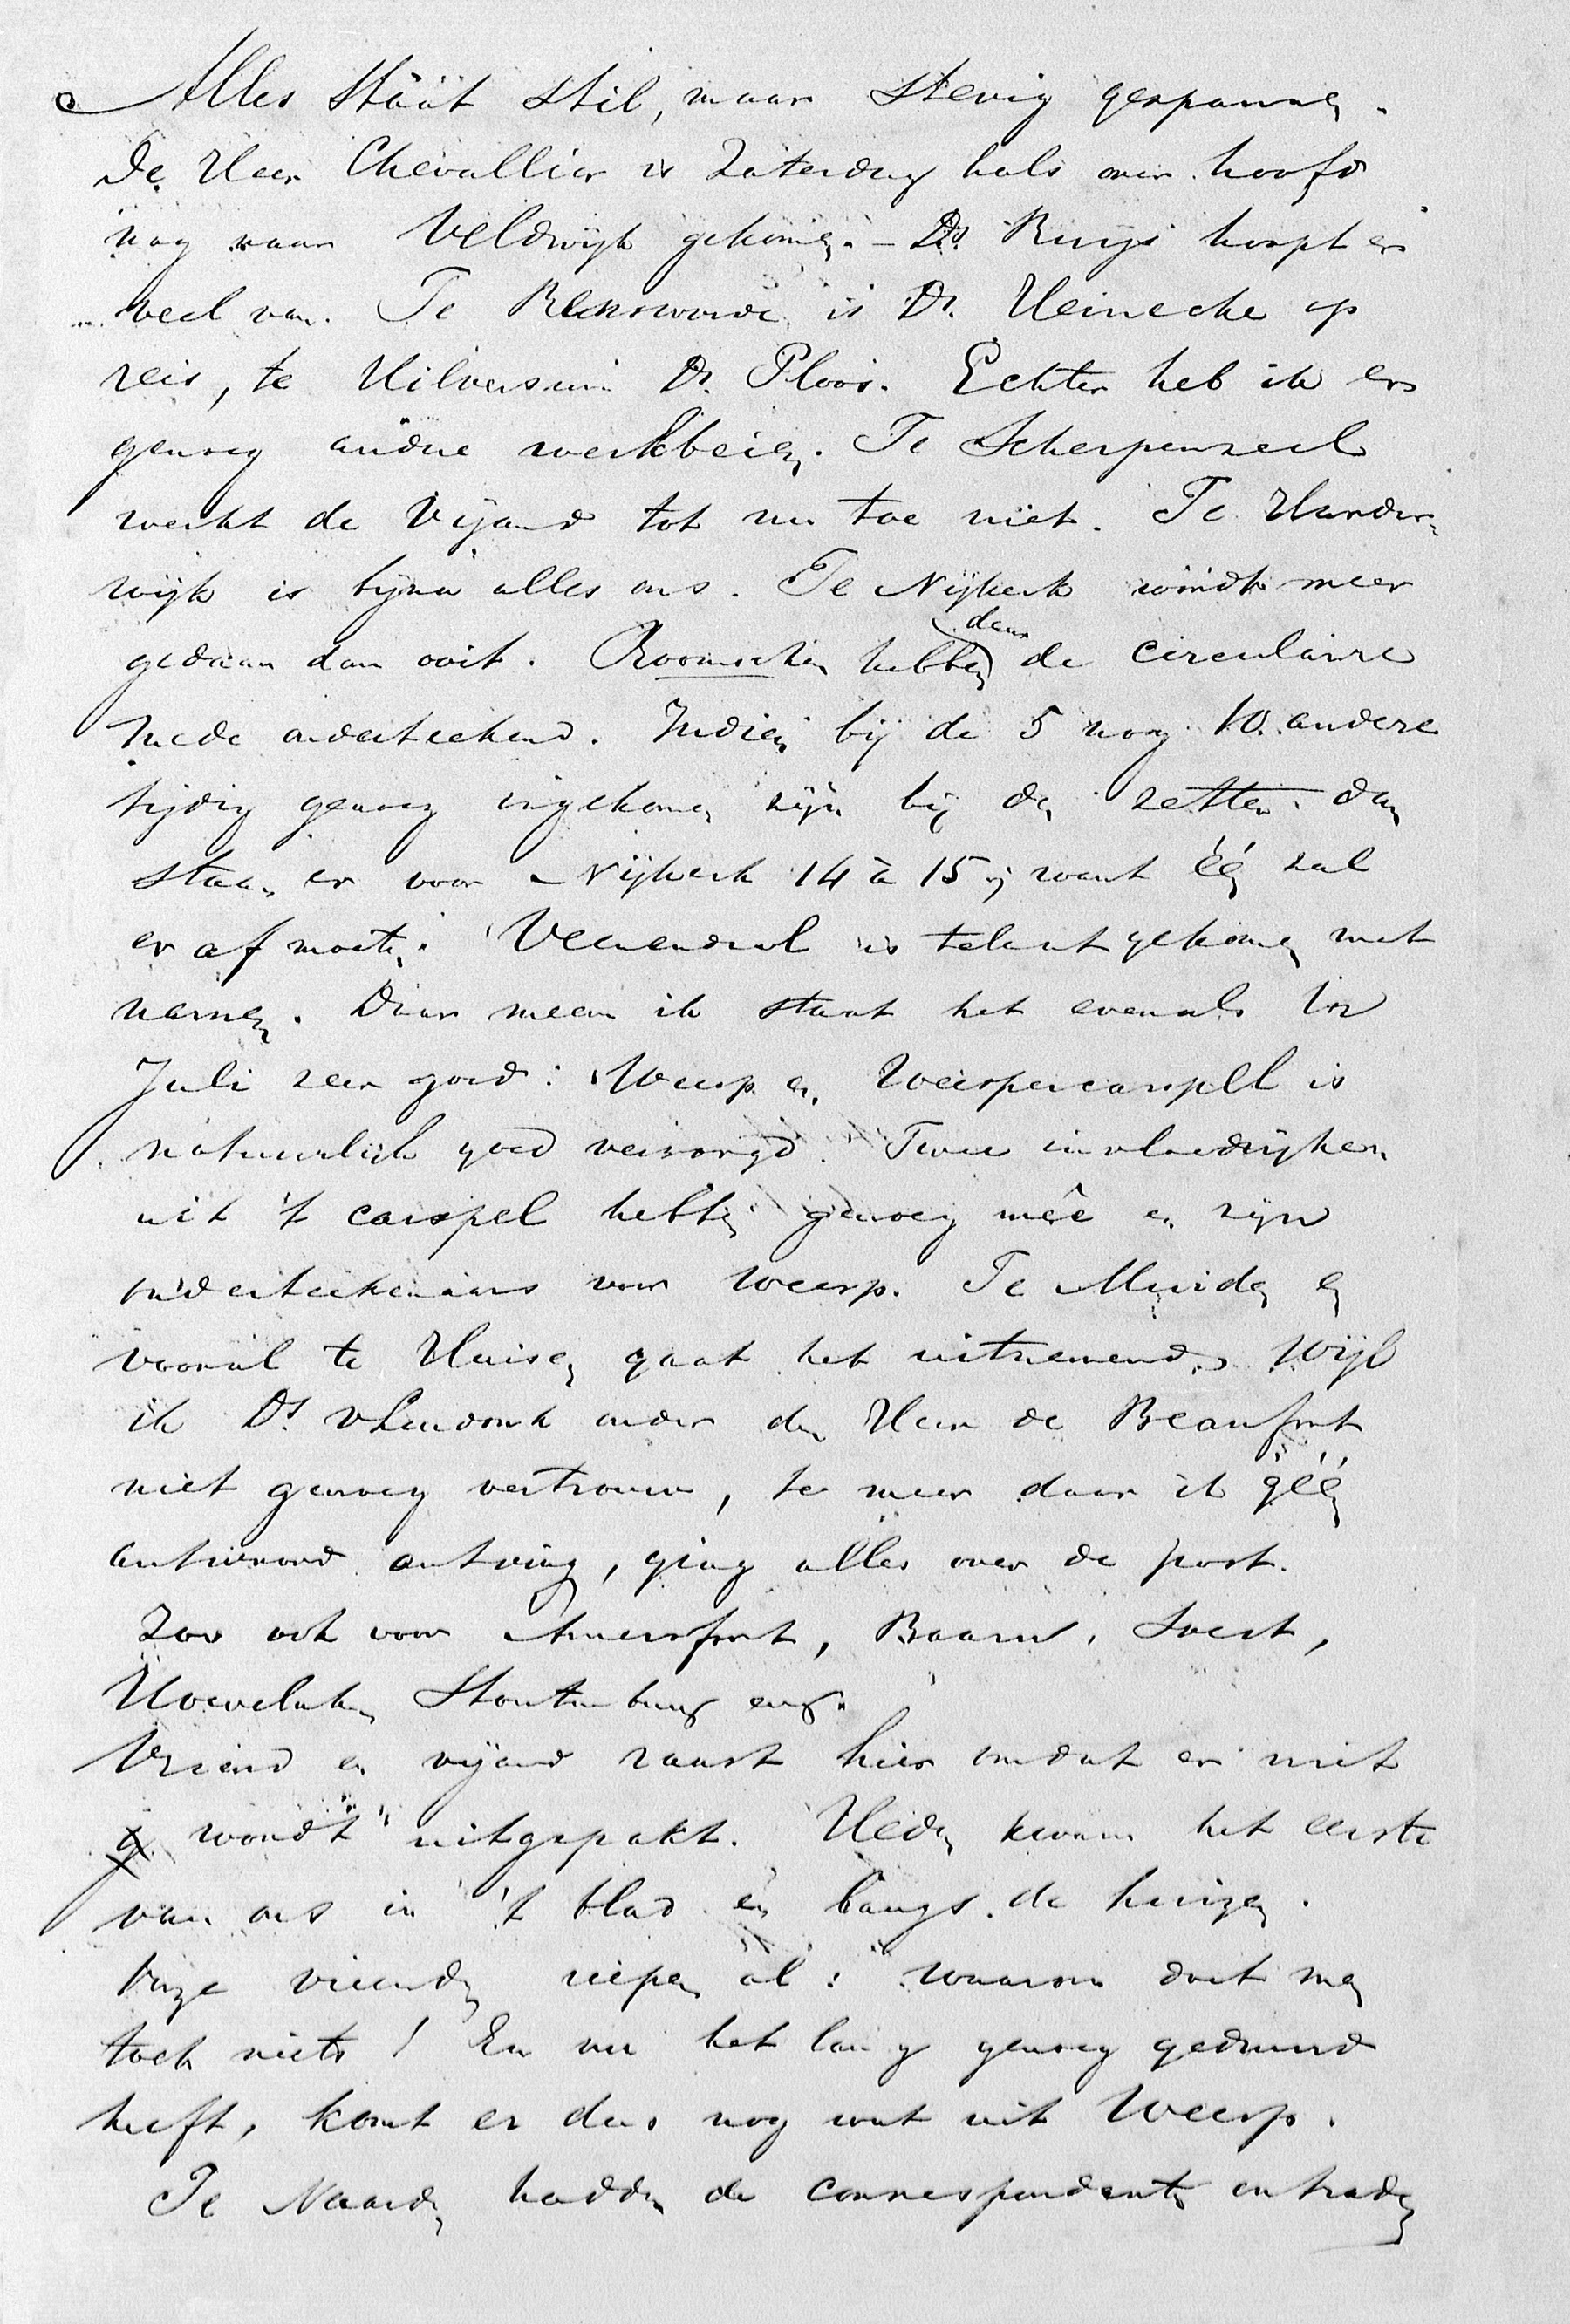 Alles staat stil, maar stevig gespannen.
De Heer Chevallier is Zaterdag hals over hoofd
nog naar Veldwijk gekomen. – Ds. Ruys hoopt er
veel van. Te Renswoude is Dr. Heinecke op
reis, te Hilversum Dr. Ploos. Echter heb ik er
genoeg andere werkbijen. Te Scherpenzeel
werkt de vijand tot nu toe niet. Te Harder-
wijk is bijna alles ons. Te Nijkerk wordt meer
gedaan dan ooit. Roomschen hebben daar de circulaire
mede onderteekend. Indien bij de 5 nog 10 andere
tijdig genoeg ingekomen zijn bij den zetter dan
staan er voor Nijkerk 14 à 15, want één zal
er af moeten. Veenendaal is te laat gekomen met
namen. Daar meen ik staat het evenals in
Juli zeer goed: Weesp en Weespercarspel is
natuurlijk goed verzorgd. Twee invloedrijken
uit 't carspel hebben genoeg meê en zijn
onderteekenaars voor Weesp. Te Muiden en
vooral te Huisen gaat het uitnemend. Wijl
ik Ds. v Lendonk onder den Heer de Beaufort
niet genoeg vertrouw, te meer daar ik géén
antwoord ontving, ging alles over de post.
Zoo ook voor Amersfoort, Baarn, Soest,
Hoevelaken Stoutenburg enz.
Vriend en vijand raast hier omdat er niet
wordt uitgepakt. Heden kwam het eerste
van ons in 't blad én langs de huizen.
Onze vrienden riepen al: waarom doet men
toch niets! En nu het lang genoeg geduurd
heeft, komt er dus nog wat uit Weesp.
Te Naarden hadden de correspondenten ontraden